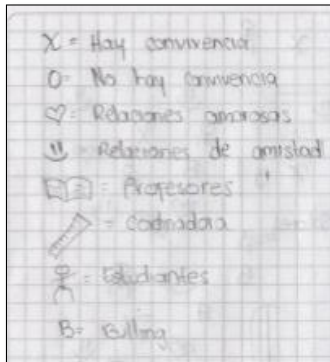 X = Hay convivencia
O = No hay convivencia
♡ = Relaciones amorosas
= Relaciones de amistad
= Profesores
= Codinadora
= Estudiantes
B = Bulling